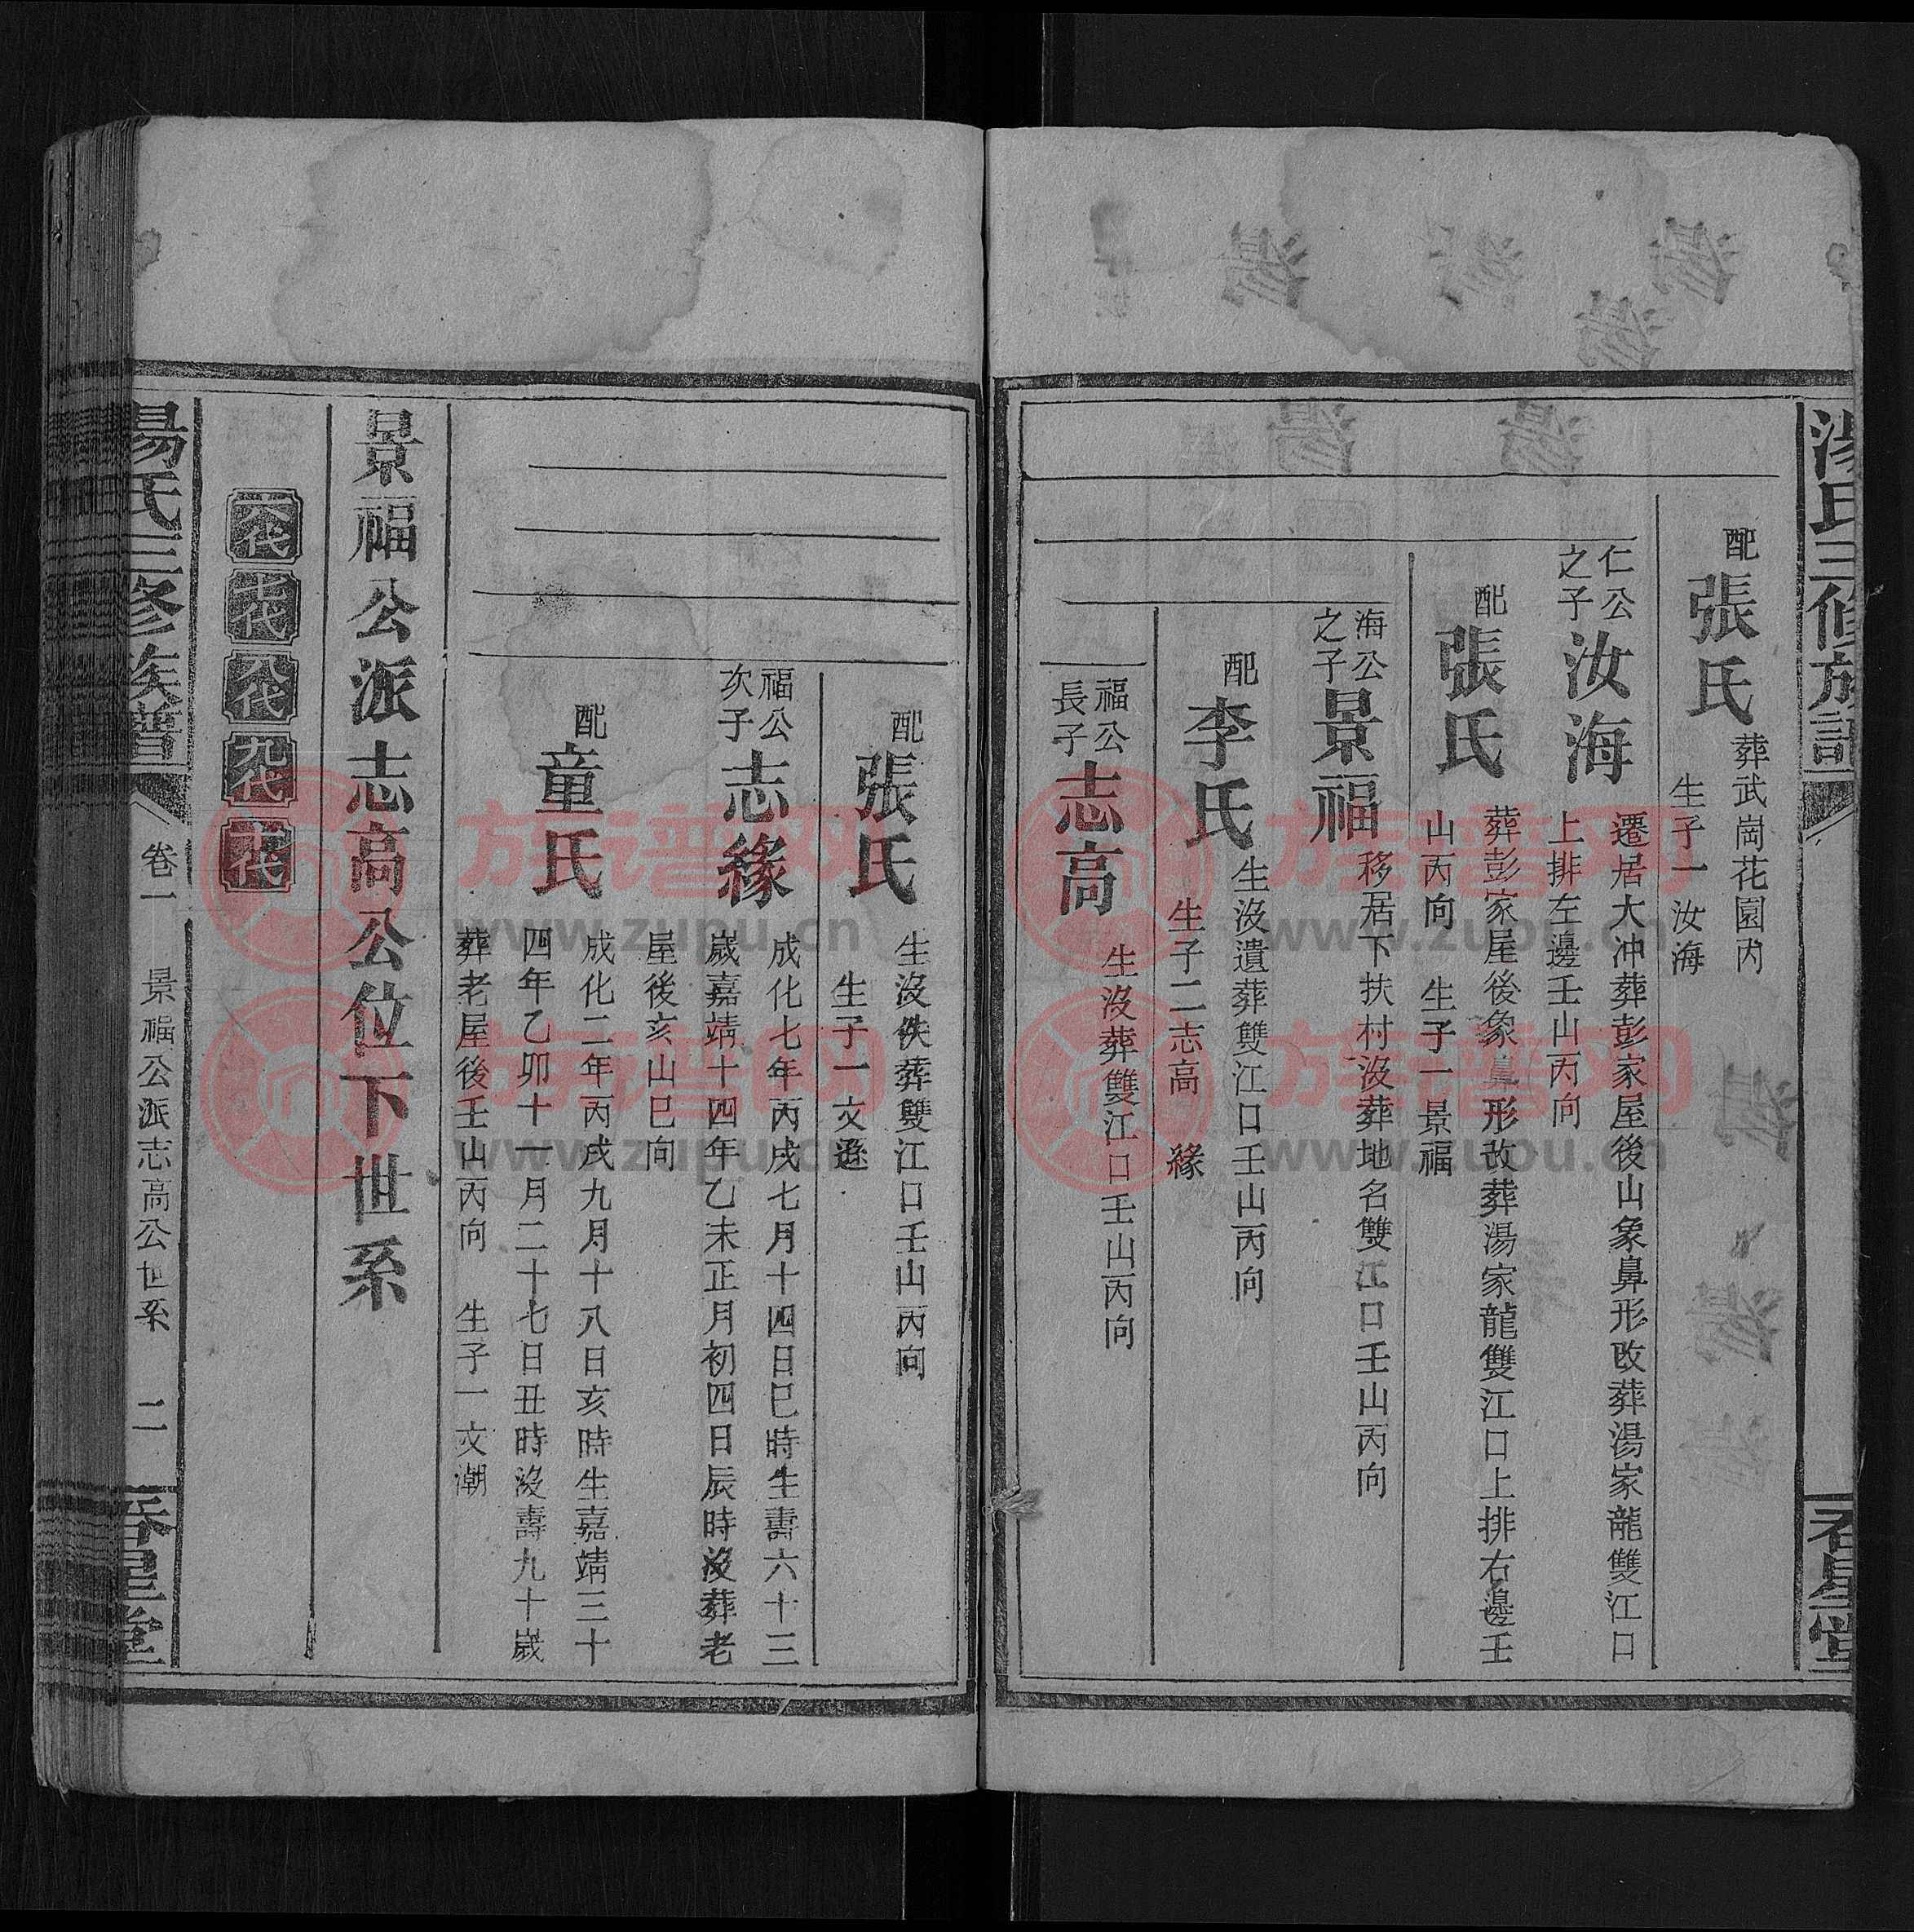 湯氏三修族譜
配張氏
葬武崗花園內
生子一汝海
仁公之子汝海
遷居大冲葬彭家屋後山象鼻形改葬湯家龍雙江口
上排左邊壬山丙向
配張氏
葬彭家屋後象鼻形改葬湯家龍雙江口上排右邊壬
山丙向 生子一景福
海公之子景福
移居下扶村没葬地名雙江口壬山丙向
配李氏
生没遺葬雙江口壬山丙向
生子二志高 緣
福公長子志高
生没葬雙江口壬山丙向
配張氏
生没佚葬雙江口壬山丙向
生子一文遜
福公次子志緣
成化七年丙戌七月十四日巳時生壽六十三
嵗嘉靖十四年乙未正月初四日辰時没葬老
屋後亥山巳向
配童氏
成化二年丙戌九月十八日亥時生嘉靖三十
四年乙卯十一月二十七日丑時没壽九十嵗
葬老屋後壬山丙向 生子一文潮
景福公派志高公位下世系
六代 七代 八代 九代 十代
湯氏三修族譜
卷一 景福公派志高公世系 二
族谱网
www.zupu.cn
族谱网
www.zupu.cn
族谱网
www.zupu.cn
族谱网
www.zupu.cn